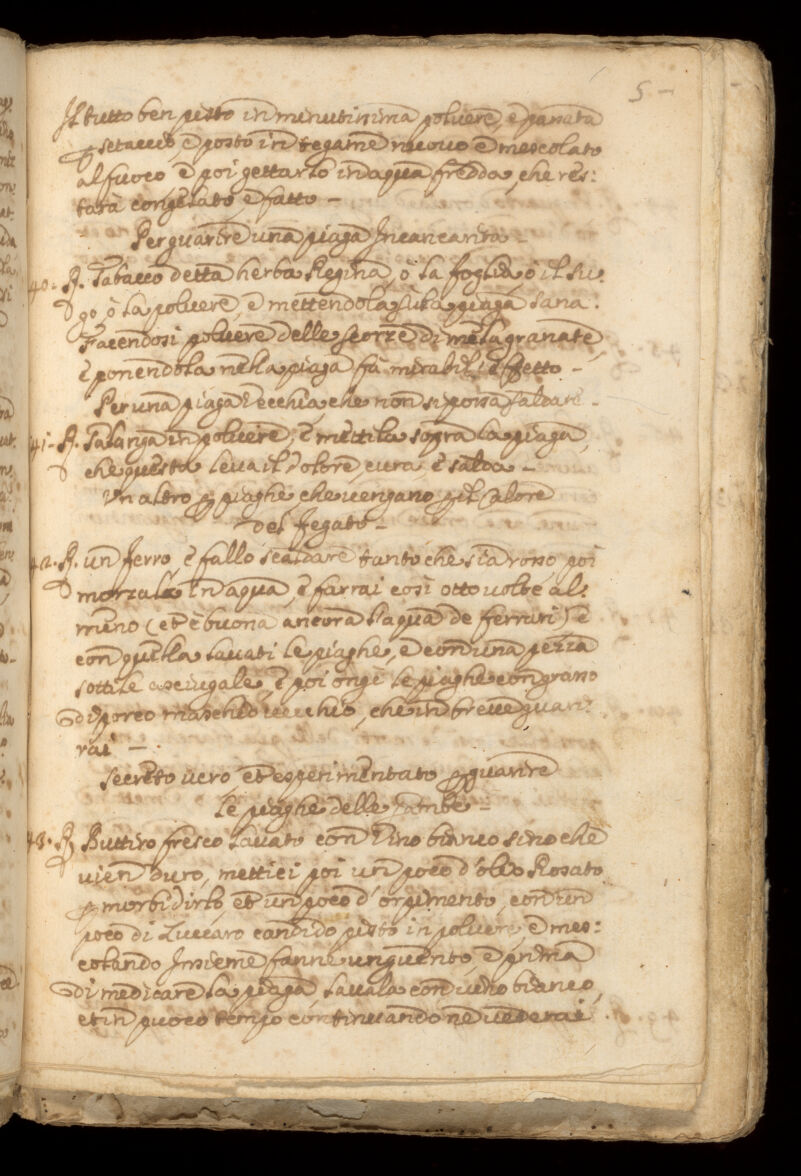 5 -
Il tutto ben pisto in minutissima polvere, è passata
p setaccio, è posto in tegame nuovo è mescolato
al fuoco è poi gettarlo in aqua fredda, che res:
tarà congelato, è fatto -
Per guarire una piaga Incancarita -
40. R. Tabacco detta herba Regina, ò la foglia, ò il su:
go, ò la polvere, è mettendola sula piaga sana.
Facendosi polvere delle scorze di mela granate
è ponendola nella piaga fà mirabil' effetto -
Per una piaga Vecchia, che non si possa saldare -
41 - R. Galanga in polvere, è mettila sopra la piaga,
che questa leva il dolore, cura, è salda -
Un altro p piaghe che vengano p il Calore
del fegato -
42. R. un ferro, è fallo scaldare tanto che sia rosso, poi
morzala in aqua, è farrai così otto volte al:
meno (et è buona ancora l'aqua de ferrari) è
con quella lavati le piaghe, è con una pezza
sottile asciugale, è poi ongi le piaghe con grasso
di porco maschio vecchio, che in breve guari:
rai -
Secreto vero, et esperimentato p guarire
le piaghe delle Gambe -
43. R. Buttiro fresco lavato con Vino bianco sino che
vien duro, mettici poi un poco d'olio Rosato
p morbidirlo, et un poco d'orpimento, con un
poco di Zuccaro candido pisto in polvere, è mes:
colando Insieme fanne unguento, è prima
di medicare la piaga, lavala con vino bianco,
et in puoco tempo continuando ne vederai